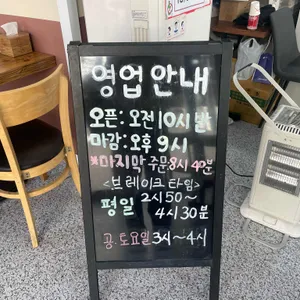 영업 안내
오픈: 오전 10시 반
마감: 오후 9시
*마지막 주문 8시 40분
<브레이크 타임>
평일 2시 50~
4시 30분
공. 토요일 3시~4시